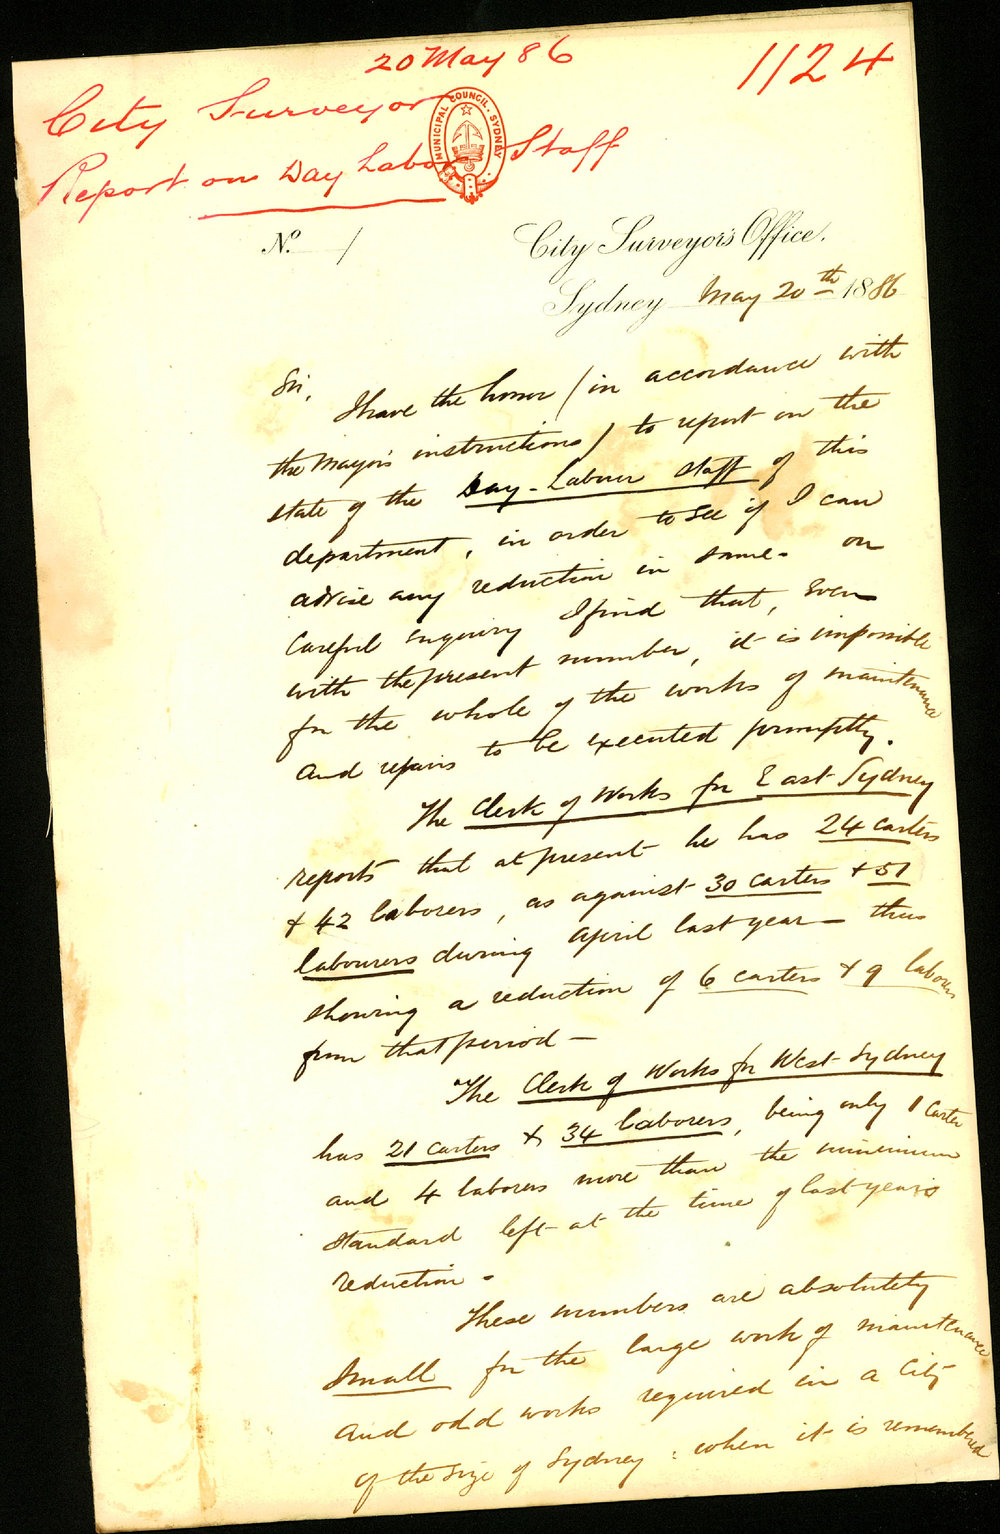 20 May 86
1124
City Surveyor
MUNICIPAL COUNCIL · SYDNEY
Report on Day Labor Staff
No. /
City Surveyor's Office.
Sydney May 20th 1886
Sir,
I have the honor (in accordance with
the Mayor's instructions) to report on the
state of the Day-Labour staff of this
department, in order to see if I can
advise any reduction in same - on
careful enquiry I find that, even
with the present number, it is impossible
for the whole of the works of maintenance
and repairs to be executed promptly.
The Clerk of Works for East Sydney
reports that at present he has 24 carters
& 42 laborers, as against 30 carters & 51
labourers during April last year - thus
showing a reduction of 6 carters & 9 laborers
from that period -
The Clerk of Works for West Sydney
has 21 carters & 34 laborers, being only 1 carter
and 4 laborers more than the minimum
standard left at the time of last year's
reduction -
These numbers are absolutely
small for the large work of maintenance
and odd works required in a City
of the size of Sydney : when it is remembered